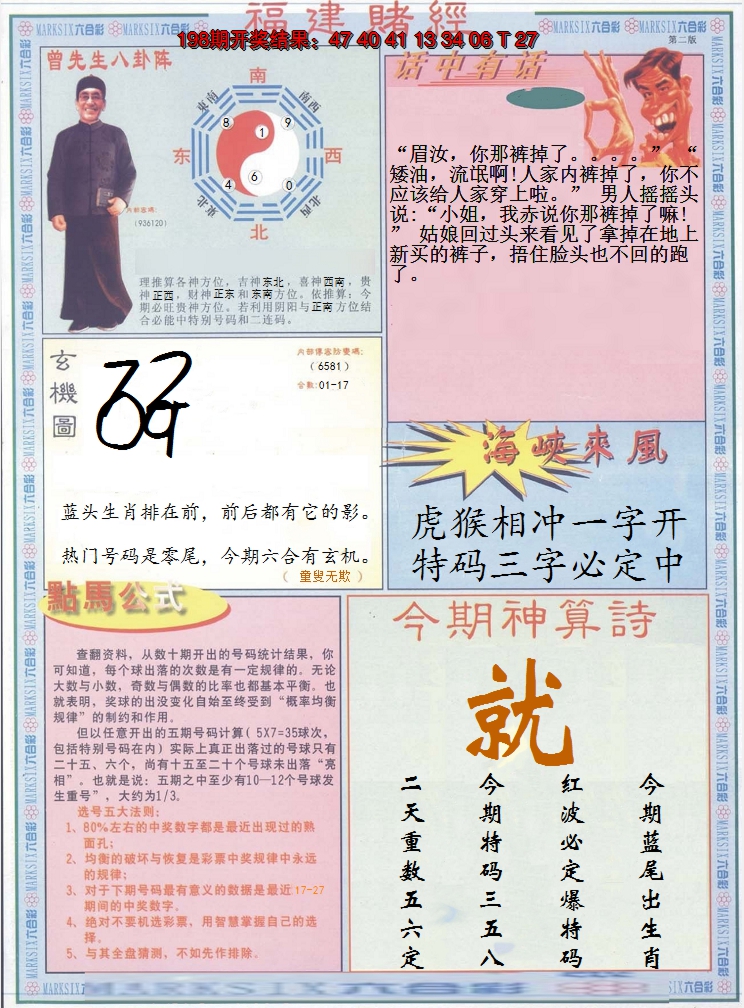 福建賭經
198期开奖结果：47 40 41 13 34 06 T 27
MARKSIX六合彩
第二版
曾先生八卦阵
南
东南
西南
8
9
1
东
西
6
4
0
东北
西北
北
内部密碼:
（936120）
理推算各神方位，吉神东北，喜神西南，贵
神正西，财神正东和东南方位。依推算：今
期必旺贵神方位。若利用阴阳与正南方位结
合必能中特别号码和二连码。
话中有话
“眉汝，你那裤掉了。。。。” “
矮油，流氓啊!人家内裤掉了，你不
应该给人家穿上啦。” 男人摇摇头
说:“小姐，我赤说你那裤掉了嘛!
” 姑娘回过头来看见了拿掉在地上
新买的裤子，捂住脸头也不回的跑
了。
玄機圖
（6581）
合数:01-17
蓝头生肖排在前，前后都有它的影。
热门号码是零尾，今期六合有玄机。
（ 童叟无欺 ）
海峽來風
虎猴相冲一字开
特码三字必定中
點馬公式
查翻资料，从数十期开出的号码统计结果，你
可知道，每个球出落的次数是有一定规律的。无论
大数与小数，奇数与偶数的比率也都基本平衡。也
就表明，奖球的出没变化自始至终受到“概率均衡
规律”的制约和作用。
但以任意开出的五期号码计算（5X7=35球次，
包括特别号码在内）实际上真正出落过的号球只有
二十五、六个，尚有十五至二十个号球未出落“亮
相”。也就是说：五期之中至少有10—12个号球发
生重号”，大约为1/3。
选号五大法则：
1、80%左右的中奖数字都是最近出现过的熟
面孔；
2、均衡的破坏与恢复是彩票中奖规律中永远
的规律；
3、对于下期号码最有意义的数据是最近17-27
期间的中奖数字。
4、绝对不要机选彩票，用智慧掌握自己的选
择。
5、与其全盘猜测，不如先作排除。
今期神算詩
就
今期蓝尾出生肖
红波必定爆特码
今期特码三五八
二天重数五六定